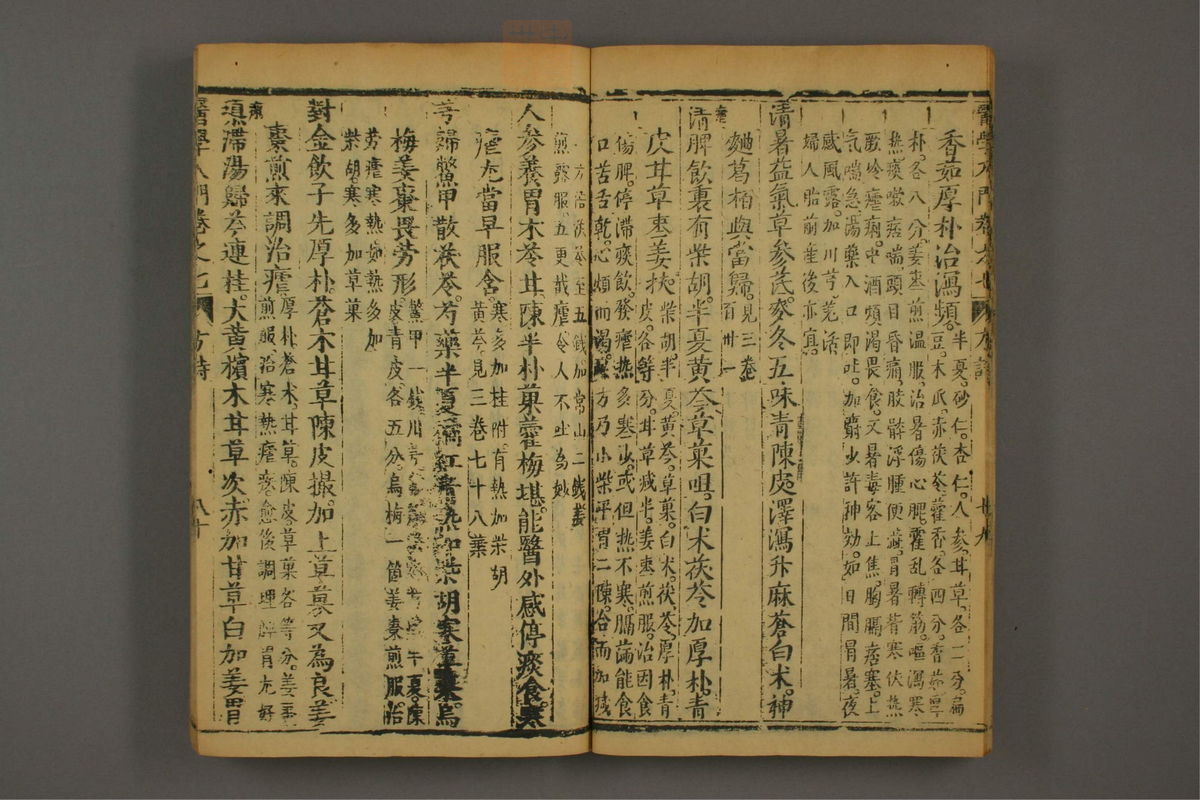 醫學入門卷之七 方詩 卅九
香茹厚朴治瀉頻。半夏。砂仁。杏仁。人參。甘草。各二分。扁
豆。木瓜。赤茯苓。藿香。各四分。香茹。厚
朴。各八分。姜棗煎溫服。治暑傷心脾。霍亂轉筋。嘔瀉寒
熱。痰嗽痞喘。頭目昏痛。肢體浮腫。便澁。冒暑背寒伏熱
厥冷瘧痢。中酒煩渴畏食。又暑毒客上焦。胸膈痞塞。上
氣喘急。湯藥入口即吐。加麝少許神効。如日間冒暑。夜
感風露。加川芎羗活
婦人胎前產後亦宜。
清暑益氣草參芪。麥冬五味青陳皮澤瀉升麻蒼白朮。神
麯葛栢與當歸。見三卷
百卅一
瘧
清脾飲裏有柴胡。半夏黃芩草菓咀。白朮茯苓加厚朴。青
皮甘草棗姜挾。柴胡。半夏。黃芩。草菓。白朮。茯苓。厚朴。青
皮。各等分。甘草减半。姜棗煎服。治因食
傷脾。停滯痰飲。發瘧熱多寒少。或但熱不寒。膈滿能食
口苦舌乾。心煩而渴。 方乃小柴平胃二陳。合而加减
一方治茯苓至五錢加常山二錢姜
煎露服五更截瘧令人不吐為妙
人參養胃朮苓甘陳半朴菓藿梅堪。能醫外感停痰食。寒
瘧尤當早服舍。寒多加桂附。有熱加柴胡
黃芩見三卷七十八葉
芎歸鱉甲散茯苓。芍藥半夏橘紅青熱加柴胡寒草菓烏
梅姜棗畏勞形。鱉甲一錢川芎
半夏。陳
皮青皮各五分。烏梅一箇姜棗煎服治
勞瘧寒熱如熱多加
柴胡寒多加草菓
對金飲子先厚朴。蒼朮甘草陳皮撮。加上草菓又為良姜
棗煎來調治瘧。厚朴蒼朮。甘草。陳皮草菓各等分。姜棗
煎服治寒熱瘧疾愈後調理脾胃尤好
痢
滯湯歸芩連桂。大黃檳木甘草次赤加甘草白加姜胃
醫學入門卷之七 方詩 八十